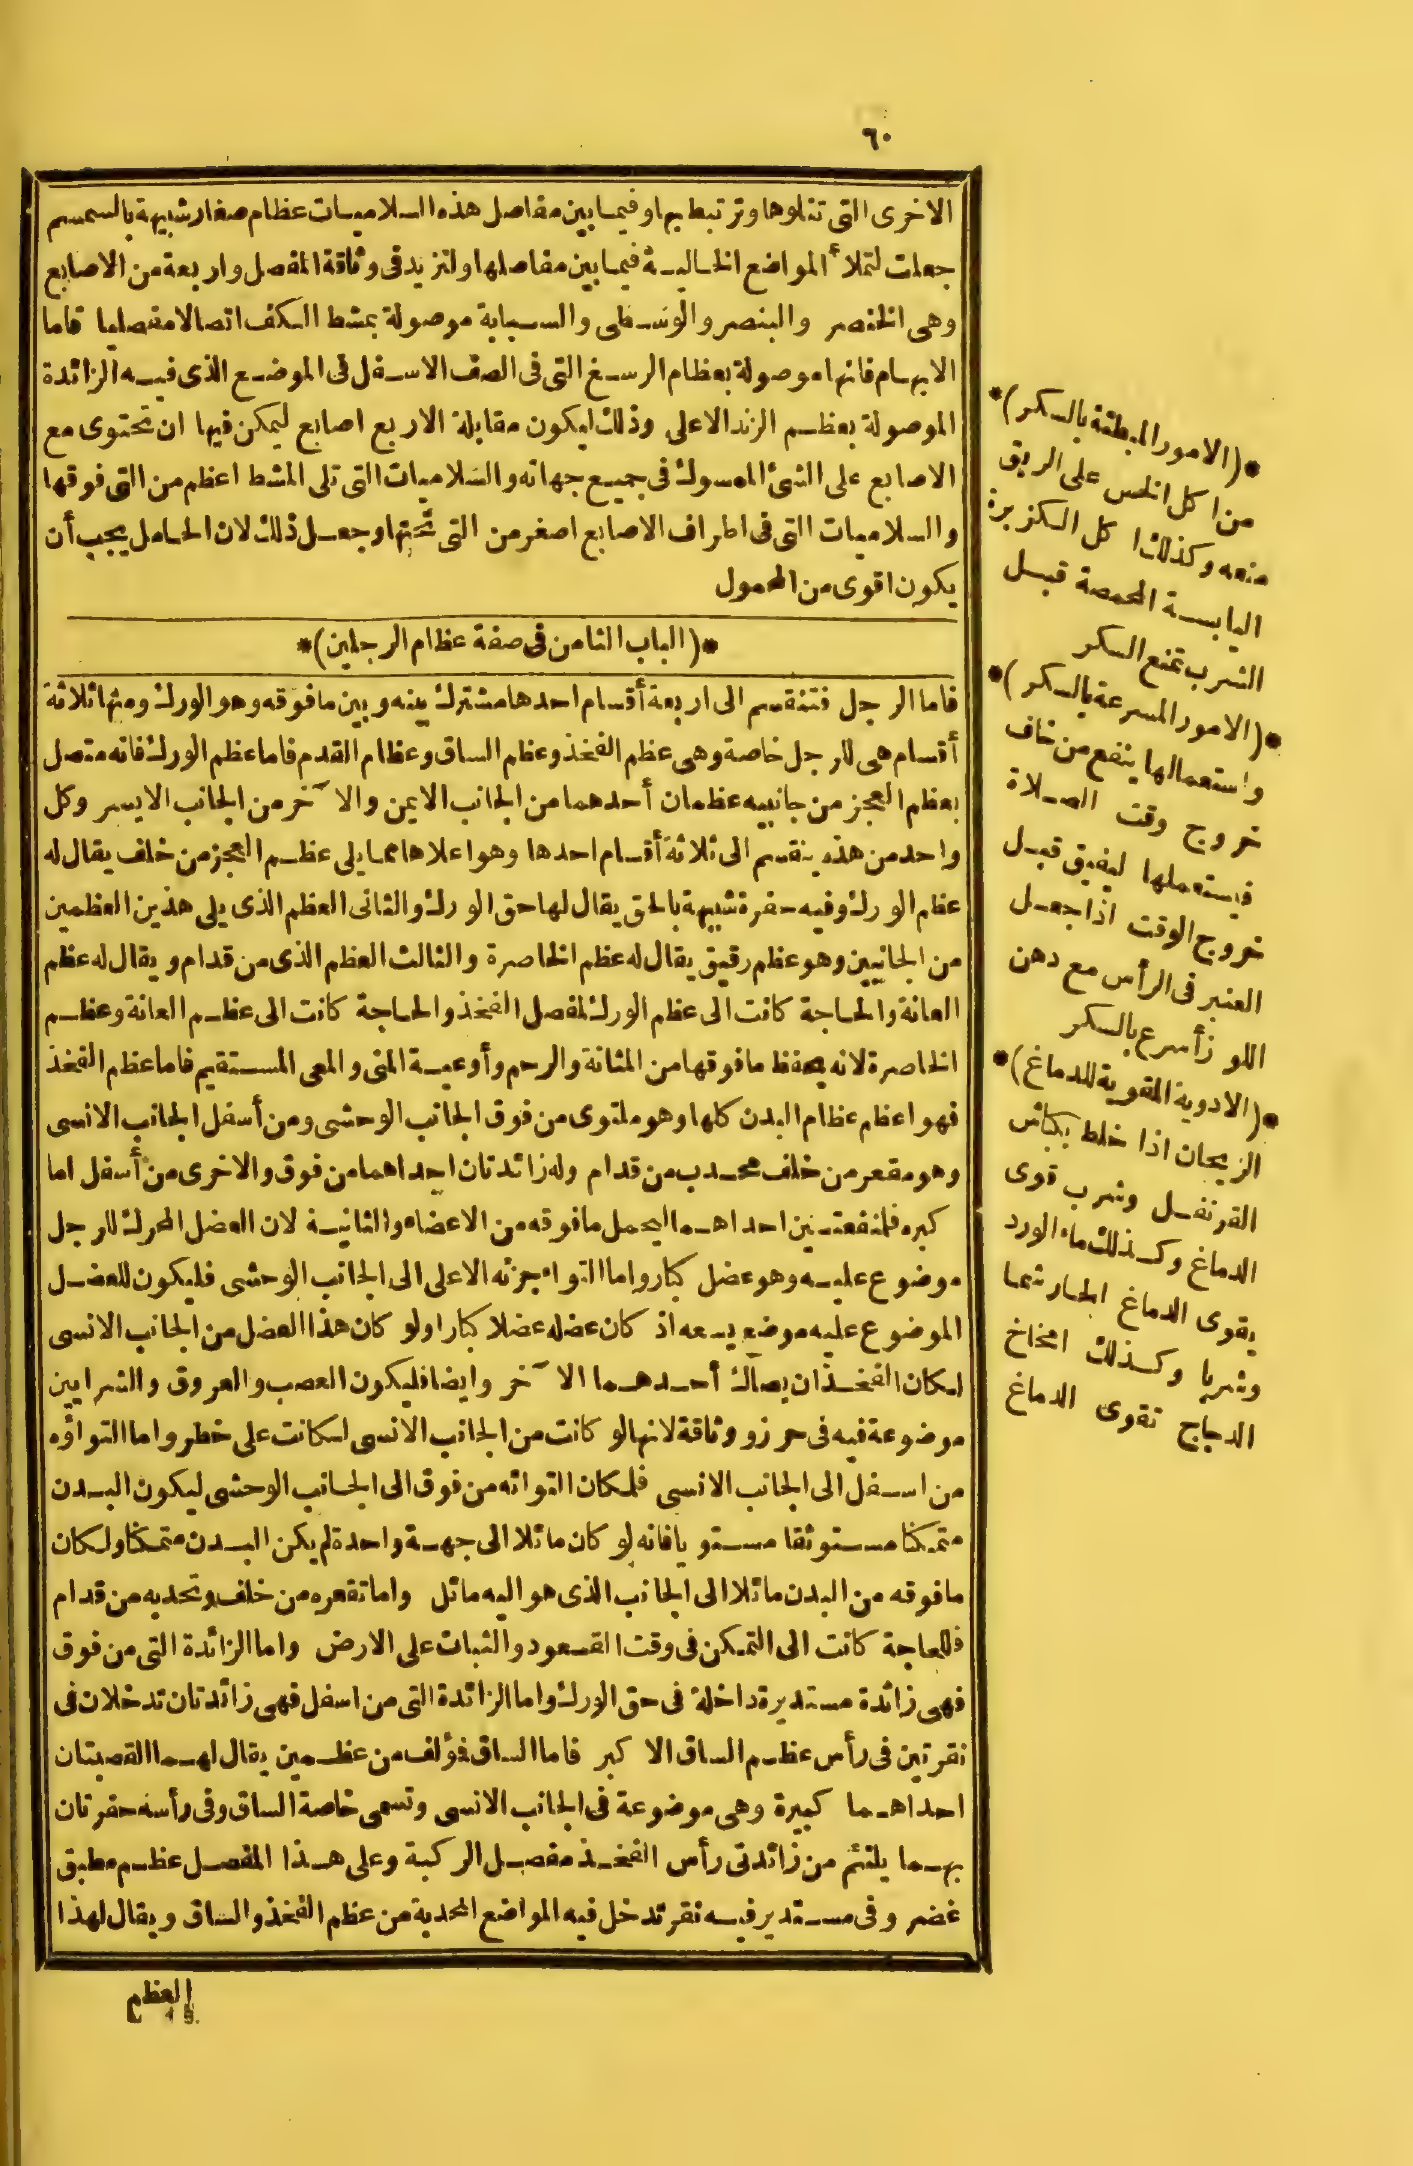 ٦٠
الاخرى التى تتلوها وترتبط بها وفيما بين مفاصل هذه السلاميات عظام صغار شبيهة بالسمسم
جعلت لتملأ المواضع الخالية فيما بين مفاصلها ولتزيد فى وثاقة المفصل واربعة من الاصابع
وهى الخنصر والبنصر والوسطى والسبابة موصولة بمشط الكف اتصالا مفصليا فاما
الابهام فانها موصولة بعظام الرسغ التى فى الصف الاسفل فى الموضع الذى فيه الزائدة
الموصولة بعظم الزند الاعلى وذلك ليكون مقابلة الاربع اصابع ليمكن فيها ان تحتوى مع
الاصابع على الشئ الممسوك فى جميع جهاته والسلاميات التى تلى المشط اعظم من التى فوقها
والسلاميات التى فى اطراف الاصابع اصغر من التى تحتها وجعل ذلك لان الحامل يجب أن
يكون اقوى من المحمول
*(الباب الثامن فى صفة عظام الرجلين)*
فاما الرجل فتنقسم الى اربعة أقسام احدها مشترك بينه وبين ما فوقه وهو الورك ومنها ثلاثة
أقسام هى للرجل خاصة وهى عظم الفخذ وعظم الساق وعظام القدم فاما عظم الورك فانه متصل
بعظم العجز من جانبيه عظمان أحدهما من الجانب الايمن والآخر من الجانب الايسر وكل
واحد من هذه ينقسم الى ثلاثة أقسام احدها وهو اعلاها مما يلى عظم العجز من خلف يقال له
عظم الورك وفيه حفرة شبيهة بالحق يقال لها حق الورك والثانى العظم الذى يلى هذين العظمين
من الجانبين وهو عظم رقيق يقال له عظم الخاصرة والثالث العظم الذى من قدام ويقال له عظم
العانة والحاجة كانت الى عظم الورك لمفصل الفخذ والحاجة كانت الى عظم العانة وعظم
الخاصرة لانه يحفظ ما فوقها من المثانة والرحم وأوعية المنى والمعى المستقيم فاما عظم الفخذ
فهو اعظم عظام البدن كلها وهو ملتوى من فوق الجانب الوحشى ومن أسفل الجانب الانسى
وهو مقعر من خلف محدب من قدام وله زائدتان احداهما من فوق والاخرى من أسفل اما
كبره فلمنفعتين احداهما ليحمل ما فوقه من الاعضاء والثانية لان العضل المحرك للرجل
موضوع عليه وهو عضل كبار واما التواء جزئه الاعلى الى الجانب الوحشى فليكون للعضل
الموضوع عليه موضع يسعه اذ كان عضله عضلا كبارا ولو كان هذا العضل من الجانب الانسى
لكان الفخذان يصاك أحدهما الآخر وايضا فليكون العصب والعروق والشرايين
موضوعة فيه فى حرز ووثاقة لانها لو كانت من الجانب الانسى لكانت على خطر واما التواؤه
من اسفل الى الجانب الانسى فلمكان التوائه من فوق الى الجانب الوحشى ليكون البدن
متمكنا مستوثقا مستويا فانه لو كان مائلا الى جهة واحدة لم يكن البدن متمكنا ولكان
ما فوقه من البدن مائلا الى الجانب الذى هو اليه مائل واما تقعره من خلف وتحدبه من قدام
فللحاجة كانت الى التمكن فى وقت القعود والثبات على الارض واما الزائدة التى من فوق
فهى زائدة مستديرة داخلة فى حق الورك واما الزائدة التى من اسفل فهى زائدتان تدخلان فى
نقرتين فى رأس عظم الساق الاكبر فاما الساق فمؤلف من عظمين يقال لهما القصبتان
احداهما كبيرة وهى موضوعة فى الجانب الانسى وتسمى خاصة الساق وفى رأسه حفرتان
بهما يلتئم من زائدتى رأس الفخذ مفصل الركبة وعلى هذا المفصل عظم مطبق
غضروفى مستدير فيه نقر تدخل فيه المواضع المحدبة من عظم الفخذ والساق ويقال لهذا
العظم
*(الامور المبطئة بالسكر)*
من اكل الخس على الريق
منعه وكذلك اكل الكزبرة
اليابسة المحمصة قبل
الشرب تمنع السكر
*(الامور المسرعة بالسكر)*
واستعمالها ينفع من خاف
خروج وقت الصلاة
فيستعملها ليفيق قبل
خروج الوقت اذا جعل
العنبر فى الرأس مع دهن
اللوز أسرع بالسكر
*(الادوية المقوية للدماغ)*
الزيحان اذا خلط بكباش
القرنفل وشرب قوى
الدماغ وكذلك ماء الورد
يقوى الدماغ الحار شما
وشربا وكذلك امخاخ
الدجاج تقوى الدماغ